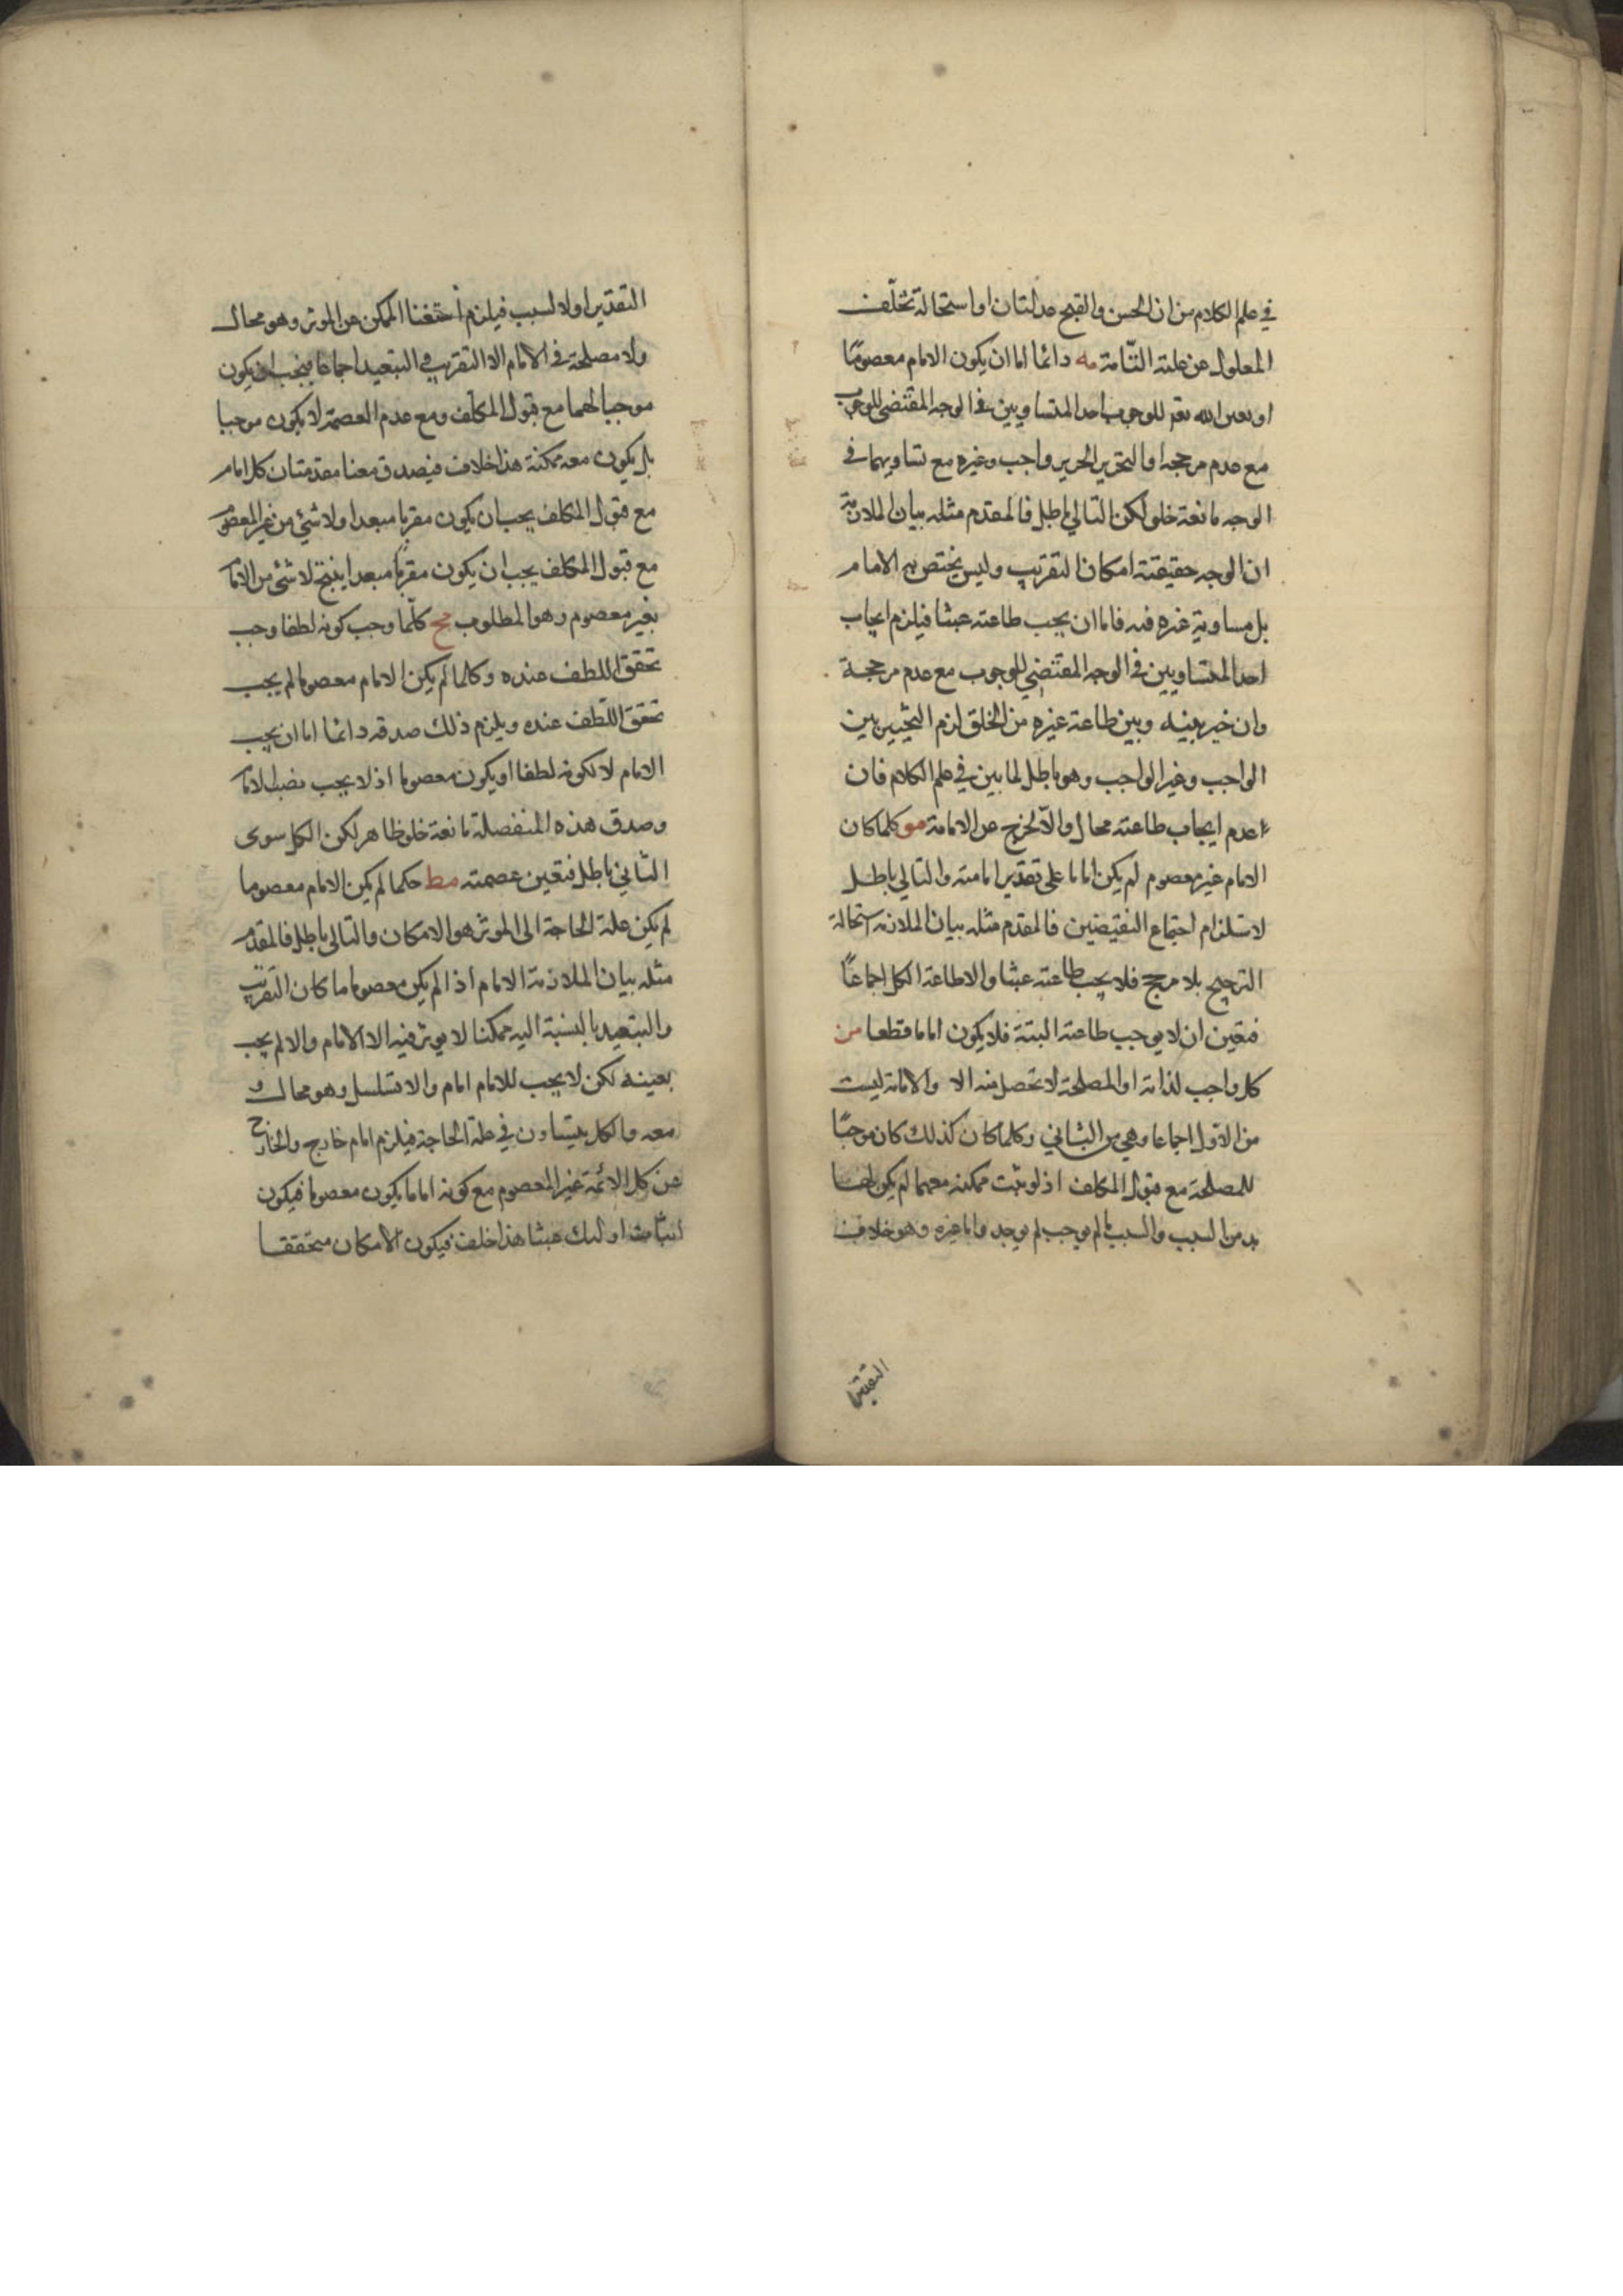 في علم الكلام من ان الحسن والقبح عدلتان او استحالة تخلّف
المعلول عن علته التّامة مه دائما اما ان يكون الامام معصومًا
او الله للوجوب احد المتساويين في الوجه المقتضي للوجوب
مع عدم مرجحه او التخيير واجب وغيره مع تساويهما في
الوجه مانعة خلو لكن التالي باطل فالمقدم مثله بيان الملازمة
ان الوجه حقيقته امكان التقريب وليس يختص به الامام
بل مساوية غيره فيه فاما ان يجب طاعته عبثا فيلزم ايجاب
احد المتساويين في الوجه المقتضي للوجوب مع عدم مرجحة
وان خير بينه وبين طاعة غيره من الخلق لزم التخيير بين
الواجب وغير الواجب وهو باطل لما بين في علم الكلام فان
عدم ايجاب طاعته محال والاّ لخرج عن الامامة مو كلما كان
الامام غير معصوم لم يكن اماما على تقدير امامته والتالي باطل
لاستلزام اجتماع النقيضين فالمقدم مثله بيان الملازمة استحالة
الترجيح بلا مرجح فلا يجب طاعته عبثا والا طاعة الكل اجماعًا
فتعين ان لا يوجب طاعته البتة فلا يكون اماما قطعا من
كل واجب لذاته او المصلحة لا تحصل منه الا والامامة ليست
من الاوّل اجماعا وهي من الثاني وكلما كان كذلك كان موجبًا
للمصلحة مع قبول المكلف اذ لو ثبت ممكنه معهما لم يكن لها
بد من السبب والسبب ما لم يوجب لم يوجد واما غيره وهو خلاف
التقديرا
التقدير اولا لسبب فيلزم استغنا الممكن عن الموثر وهو محال
ولا مصلحة في الامام الا التقريب والتبعيد اجماعا فيجب ان يكون
موجبا لهما مع قبول المكلف ومع عدم العصمة لا يكون موجبا
بل يكون معه ممكنة هذا خلاف فيصدق معنا مقدمتان كل امام
مع قبول المكلف يجب ان يكون مقربا مبعدا ولا شئ من غير المعصوم
مع قبول المكلف يجب ان يكون مقربا مبعدا ينتج لا شئ من الامام
بغير معصوم وهو المطلوب مح كلّما وجب كونه لطفا وجب
تحقق اللطف عنده وكلما لم يكن الامام معصوما لم يجب
تحقق اللّطف عنده ويلزم ذلك صدقه دائما اما ان يجب
الامام لا لكونه لطفا او يكون معصوما اذ لا يجب نصب الامام
وصدق هذه المنفصلة مانعة خلو ظاهر لكن الكل سوى
الثاني باطل فتعين عصمته مط حكما لم يكن الامام معصوما
لم يكن علة الحاجة الى الموثر هو الامكان والتالي باطل فالمقدم
مثله بيان الملازمة الامام اذا لم يكن معصوما ما كان التقريب
والتبعيد بالنسبة اليه ممكنا لا يوثر فيه الا الامام والا لم يجب
بعينه لكن لا يجب للامام امام والا تسلسل وهو محال و
معه والكل يتساون في علة الحاجة فيلزم امام خارج والخارج
عن كل الائمة غير المعصوم مع كونه اماما يكون معصوما فيكون
اثبات اولئك عبثا هذا خلف فيكون الامكان متحققا